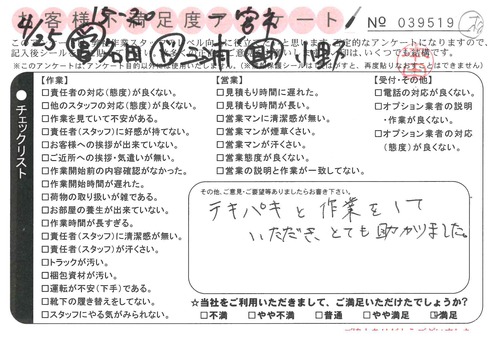 お客様満足度アンケート
4/25
15-20
No 039519
【作業】
□責任者の対応(態度)が良くない。
□他のスタッフの対応(態度)が良くない。
□作業を見ていて不安がある。
□責任者(スタッフ)に好感が持てない。
□お客様への挨拶が出来ていない。
□ご近所への挨拶・気遣いが無い。
□作業開始前の内容確認がなかった。
□作業開始時間が遅れた。
□荷物の取り扱いが雑である。
□お部屋の養生が出来ていない。
□作業時間が長すぎる。
□責任者(スタッフ)に清潔感が無い。
□責任者(スタッフ)が汗くさい。
□トラックが汚い。
□梱包資材が汚い。
□運転が不安(下手)である。
□靴下の履き替えをしてない。
□スタッフにやる気がみられない。
【営業】
□見積もり時間に遅れた。
□見積もり時間が長い。
□営業マンに清潔感が無い。
□営業マンが煙草くさい。
□営業マンが汗くさい。
□営業態度が良くない。
□営業の説明と作業が一致してない。
【受付・その他】
□電話の対応が良くない。
□オプション業者の説明
・作業が良くない。
□オプション業者の対応
(態度)が良くない。
チェックリスト
その他、ご意見・ご要望等ありましたらお書き下さい。
テキパキと作業をして
いただき とても助かりました。
☆当社をご利用いただきまして、ご満足いただけたでしょうか?
□不満 □やや不満 □普通 □やや満足 ☑満足